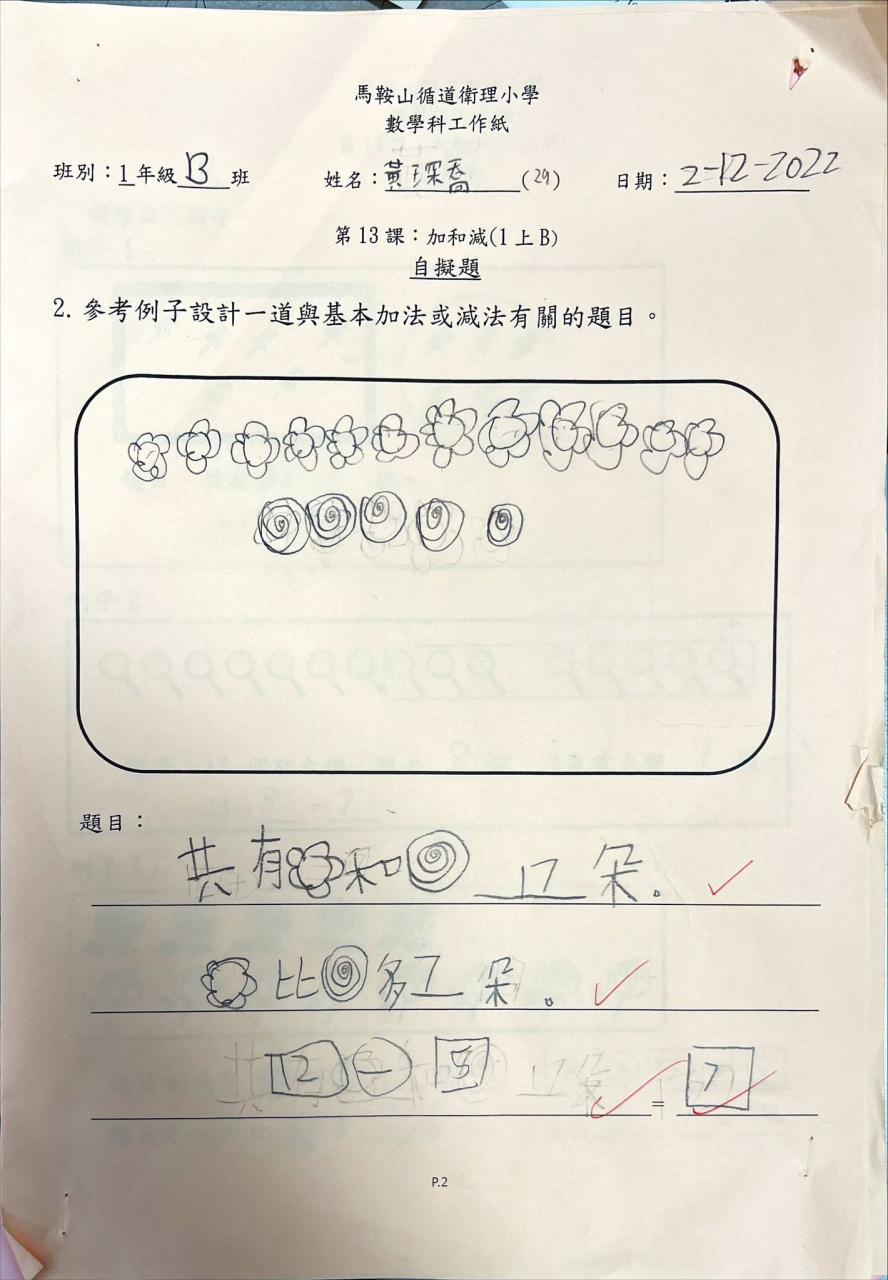 馬鞍山循道衛理小學
數學科工作紙
班別：1年級 B 班 姓名：黃琛喬 (29) 日期：2-12-2022
第13課：加和減(1上B)
自擬題
2. 參考例子設計一道與基本加法或減法有關的題目。
題目：
共有和 17 朵。
比多7朵。
12 - 5 = 7
P.2